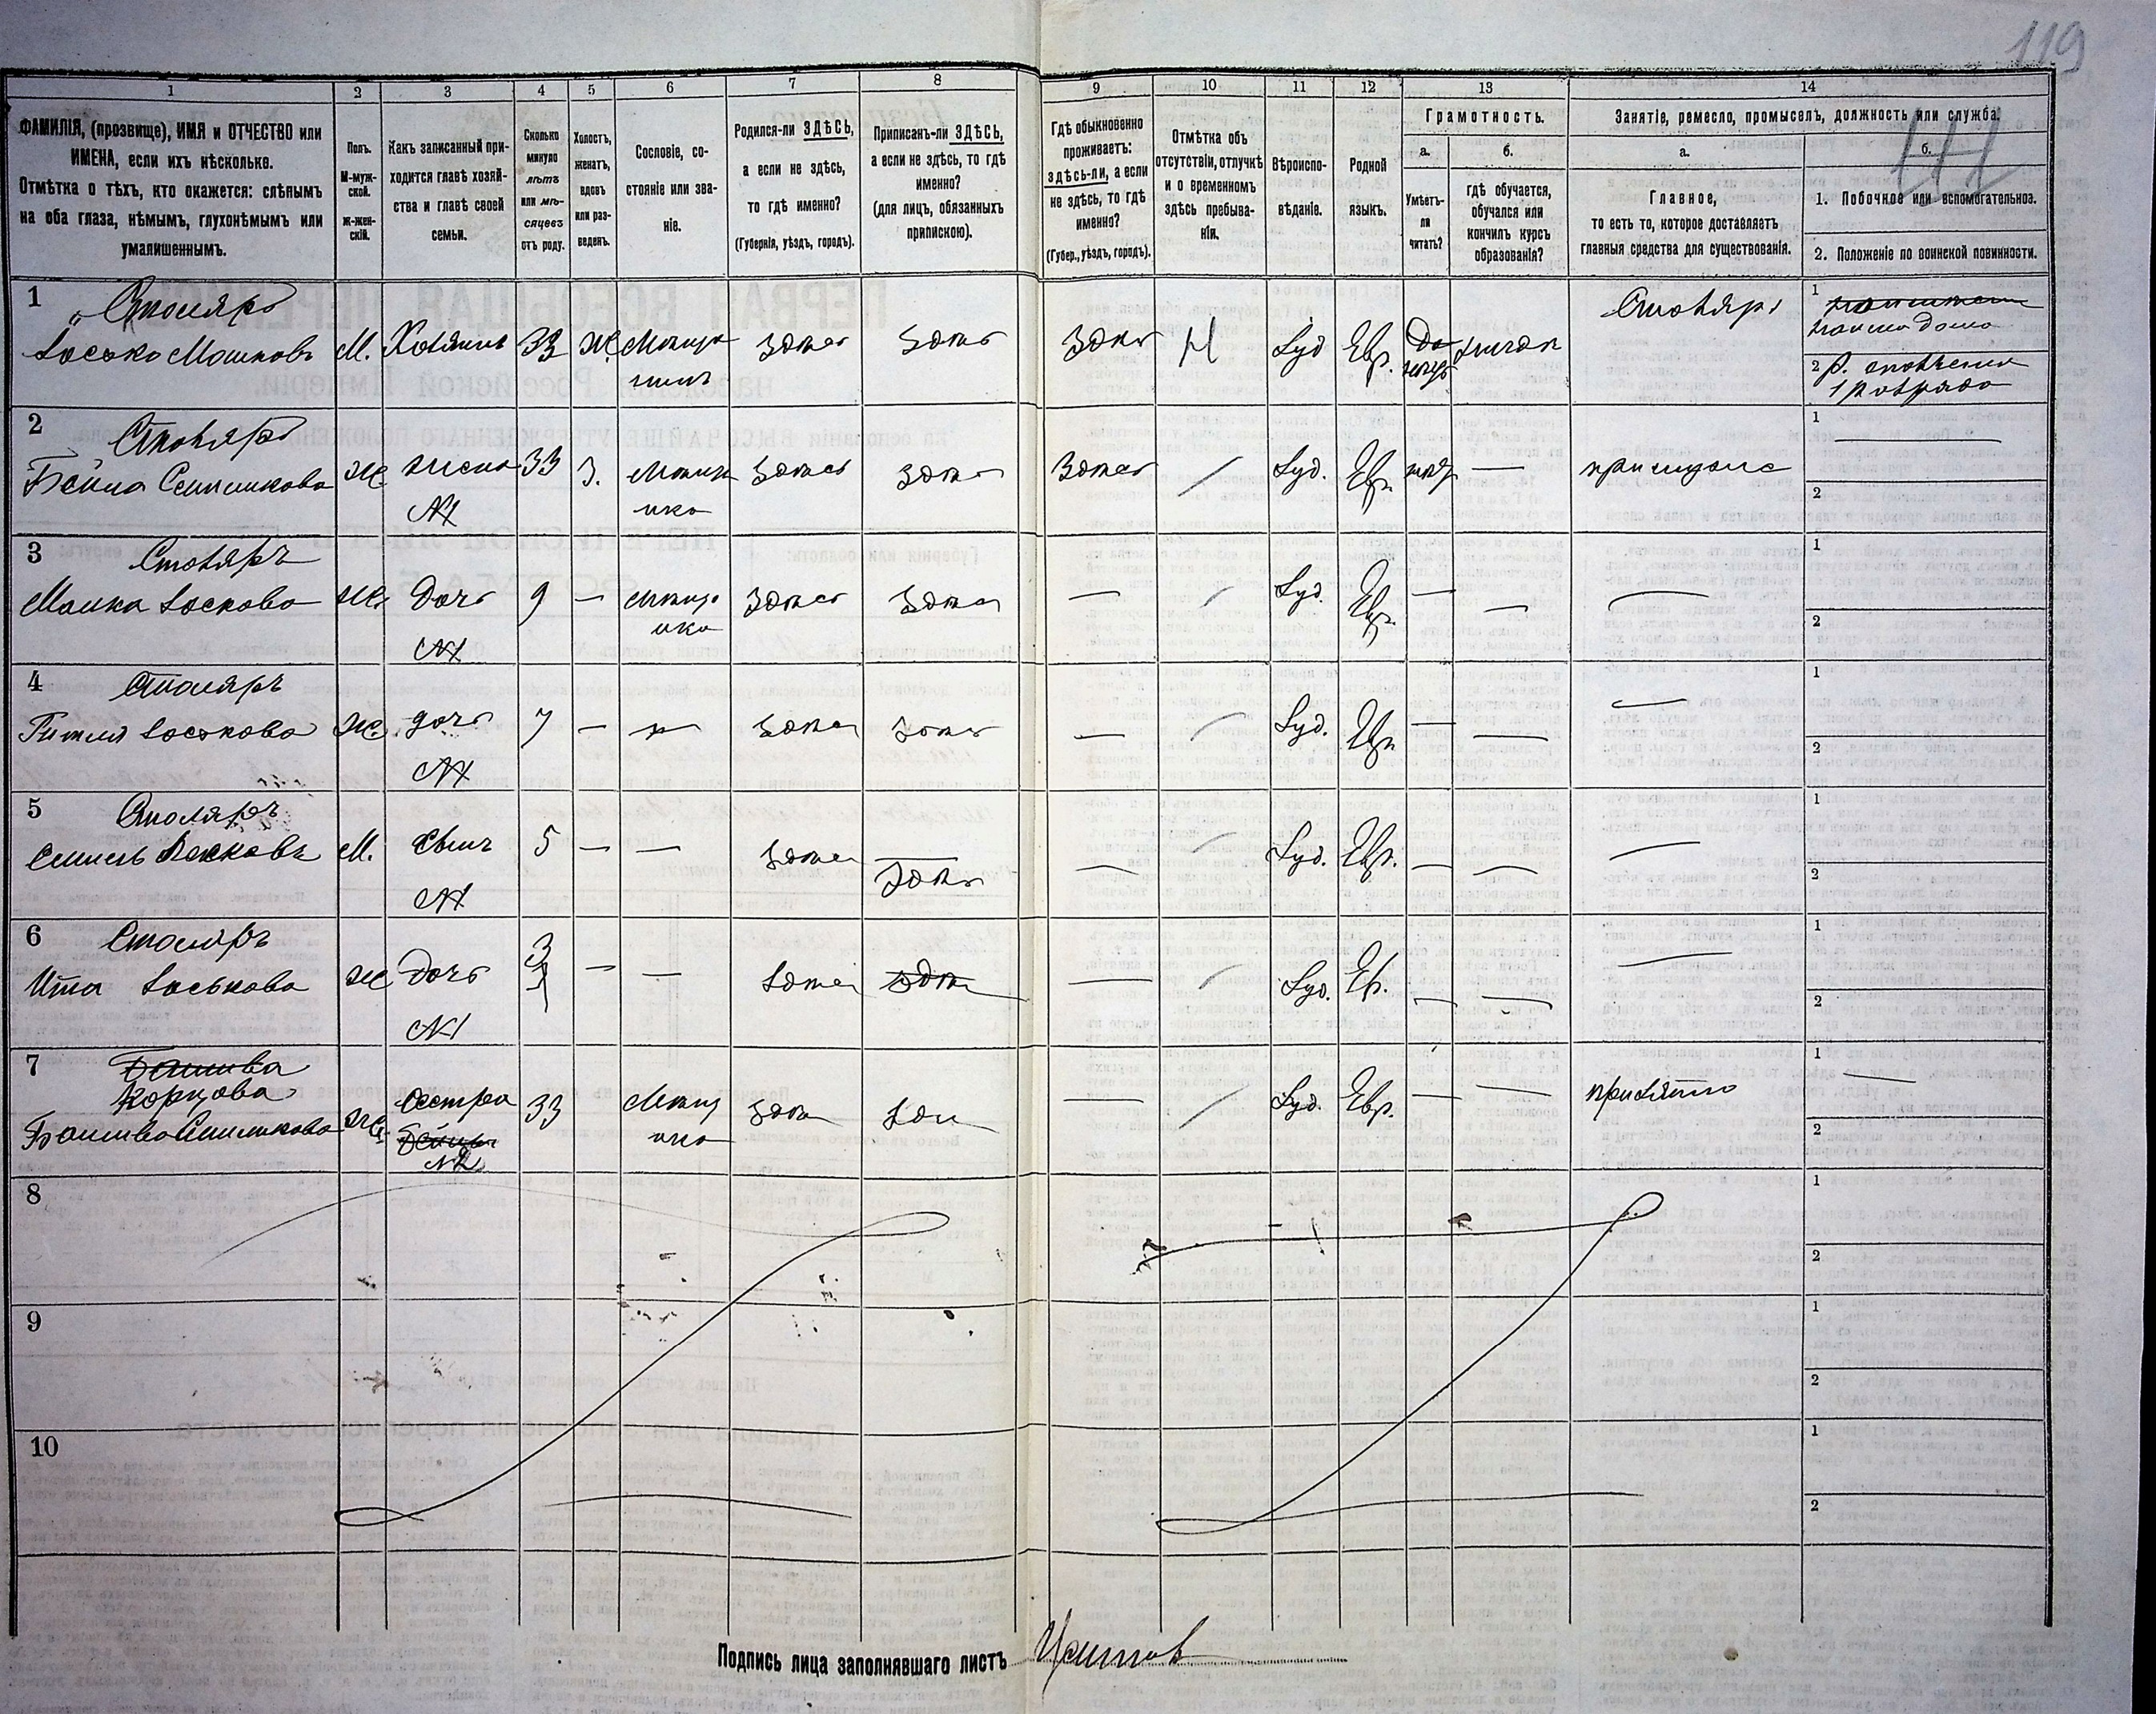 119
1 2 3 4 5 6 7 8 9 10 11 12 13 14
ФАМИЛІЯ, (прозвище), ИМЯ и ОТЧЕСТВО или
ИМЕНА, если ихъ нѣсколько.
Отмѣтка о тѣхъ, кто окажется: слѣпымъ
на оба глаза, нѣмымъ, глухонѣмымъ или
умалишеннымъ.
Полъ.
М-муж-
ской.
ж-жен-
скій.
Какъ записанный при-
ходится главѣ хозяй-
ства и главѣ своей
семьи.
Сколько
минуло
лѣтъ
или мѣ-
сяцевъ
отъ роду.
Холостъ,
женатъ,
вдовъ
или раз-
веденъ.
Сословіе, со-
стояніе или зва-
ніе.
Родился-ли ЗДѢСЬ,
а если не здѣсь,
то гдѣ именно?
(Губернія, уѣздъ, городъ).
Приписанъ-ли ЗДѢСЬ,
а если не здѣсь, то гдѣ
именно?
(для лицъ, обязанныхъ
припискою).
Гдѣ обыкновенно
проживаетъ:
здѣсь-ли, а если
не здѣсь, то гдѣ
именно?
(Губер., уѣздъ, городъ).
Отмѣтка объ
отсутствіи, отлучкѣ
и о временномъ
здѣсь пребыва-
ніи.
Вѣроиспо-
вѣданіе.
Родной
языкъ.
Грамотность.
а.
Умѣетъ-
ли
читать?
б.
гдѣ обучается,
обучался или
кончилъ курсъ
образованія?
Занятіе, ремесло, промыселъ, должность или служба.
а.
Главное,
то есть то, которое доставляетъ
главныя средства для существованія.
б.
1. Побочное или вспомогательное.
2. Положеніе по воинской повинности.
1 Столяръ
Іосько Мошковъ М. Хозяинъ 33 ж. Мѣща
нинъ здѣсь здѣсь здѣсь Іуд Евр. Столяръ
1
2 р. ополченія
1 разряда
2 Столяръ
Бейла ж. жена 33 З. Мѣщан
ка здѣсь здѣсь здѣсь Іуд. Евр. — при мужѣ
№1
1 —
2
3 Столяръ
Малка Іоскова ж. дочь 9 — мѣщан
ка здѣсь здѣсь — Іуд. Евр. — — —
№1
1
2
4 Столяръ
Гитля Іоськова ж. дочь 7 — здѣсь здѣсь — Іуд. Евр. — — —
№1
1
2
5 Столяръ
Іосковъ М. сынъ 5 — — здѣсь здѣсь — Іуд. Евр. — — —
№1
1
2
6 Столяръ
Ита Іоськова ж. дочь 3 — — здѣсь здѣсь — Іуд. Ев. — — —
№1
1
2
7
ж. Сестра 33 Мѣщан
ка здѣсь здѣсь — Іуд. Евр. — —
№2
1 —
2
8
1
2
9
1
2
10
1
2
Подпись лица заполнявшаго листъ